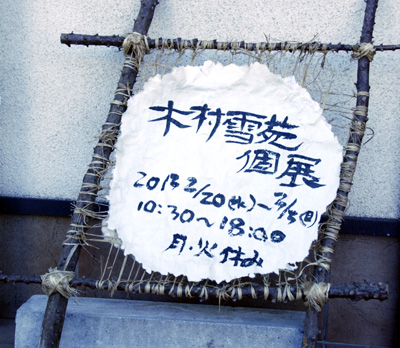 木村雪苑
個展
2013 2/20(水)~3/3(日)
10:30~18:00
月・火休み